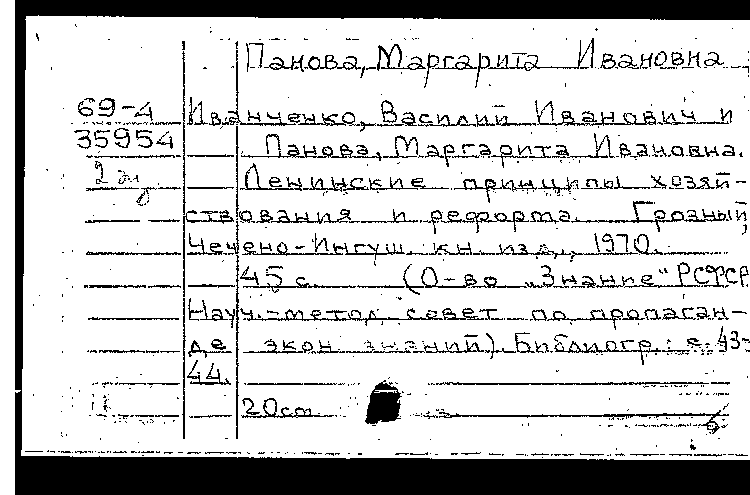 Панова, Маргарита Ивановна
69-4
35954
2 эк
Иванченко, Василий Иванович и
Панова, Маргарита Ивановна.
Ленинские принципы хозяй-
ствования и реформа. Грозный,
Чечено-Ингуш. кн. изд., 1970.
45 с. (О-во „Знание“ РСФСР
Науч.-метод совет по пропаган-
де экон знаний). Библиогр.: с. 43-
44.
20см